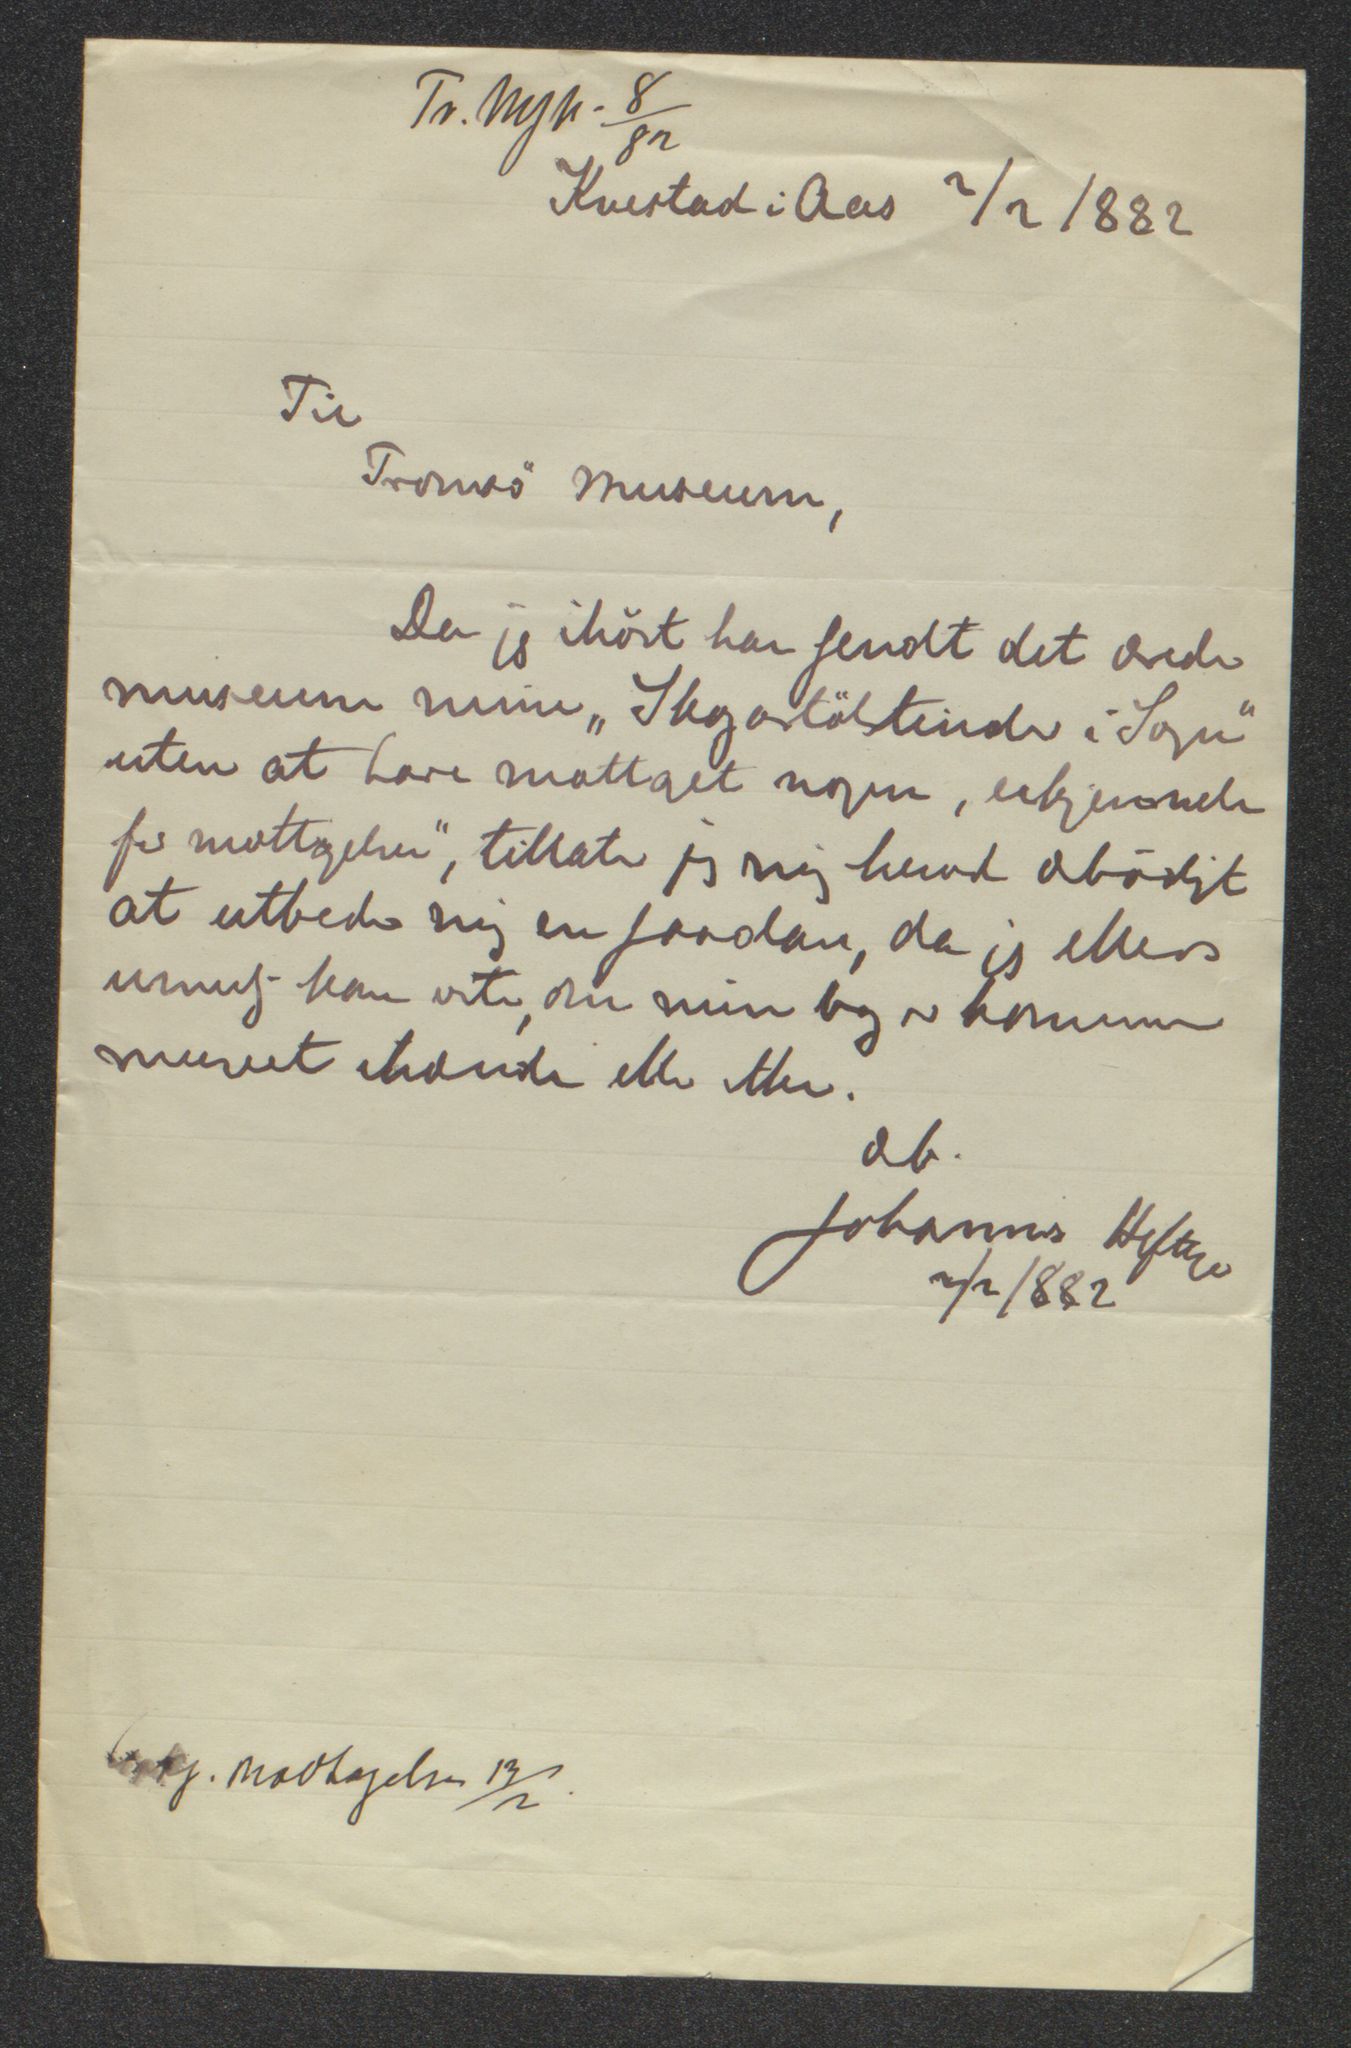 Tr. Mus. 8/82
Kvestad i Aas 2/2 1882
Til
Tromsö museum,
Da jg ihöst har sendt det ærede
museum mine „Skagastölstinder i Sogn“
uten at have mottaget nogen, erkjennelse
for mottagelsen“, tillater jg mig herved ærbödigst
at utbede mig en saadan, da jg ellers
umulig kan vite, om min bog er kommen
museet ihænde eller ikke.
Ærb.
Johannes Heftye
2/2 1882
Erkj. Modtagelsen 13/2.